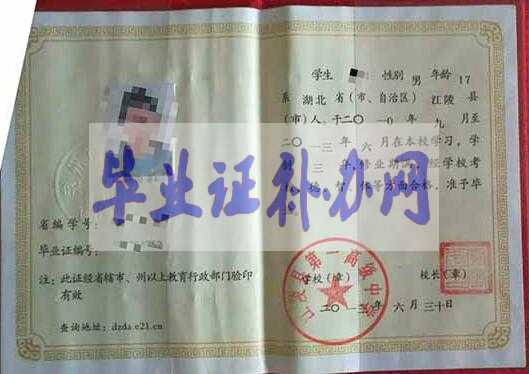 学生 性别 男 年龄 17
系 湖北 省(市、自治区) 江陵 县
(市)人,于二〇一〇年 九 月至
二〇一三年 六 月在本校学习,学
制 三 年,修业期满,经学校考
核 德 智 体等方面合格,准予毕
毕业证补办网
省编学号:
毕业证编号:
注:此证经省辖市、州以上教育行政部门验印
有效
查询地址:dzda.e21.cn
江陵县第一高级中学
学校(章)
校长(章)
二〇一三年 六 月 三十日